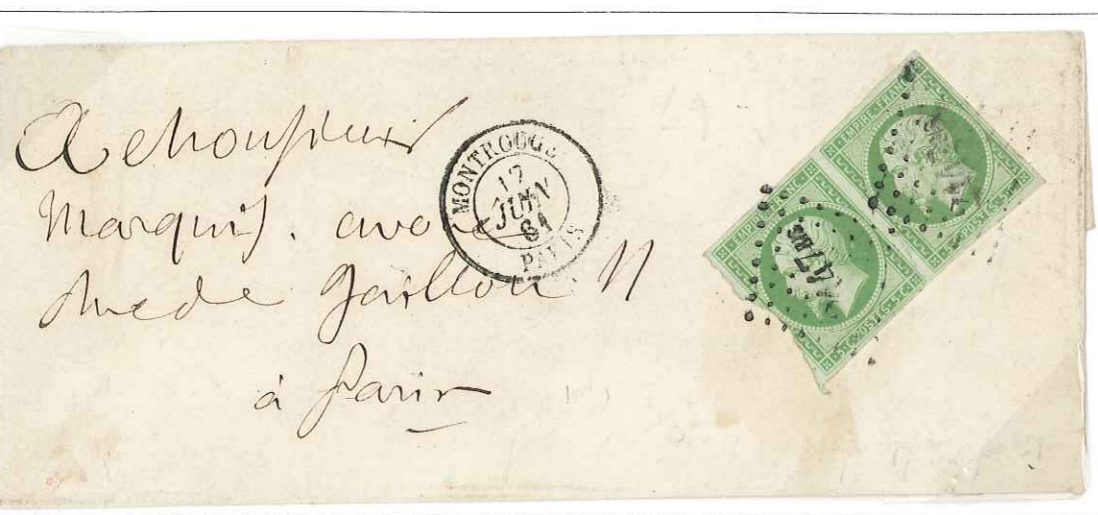 A Monsieur
Marquis. avoué
Rue de Gaillon 11
à Paris
MONTROUGE
17
JUIN
61
PARIS
EMPIRE FRANC
5 C. POSTES 5 C.
EMPIRE FRANC
5 C. POSTES 5 C.